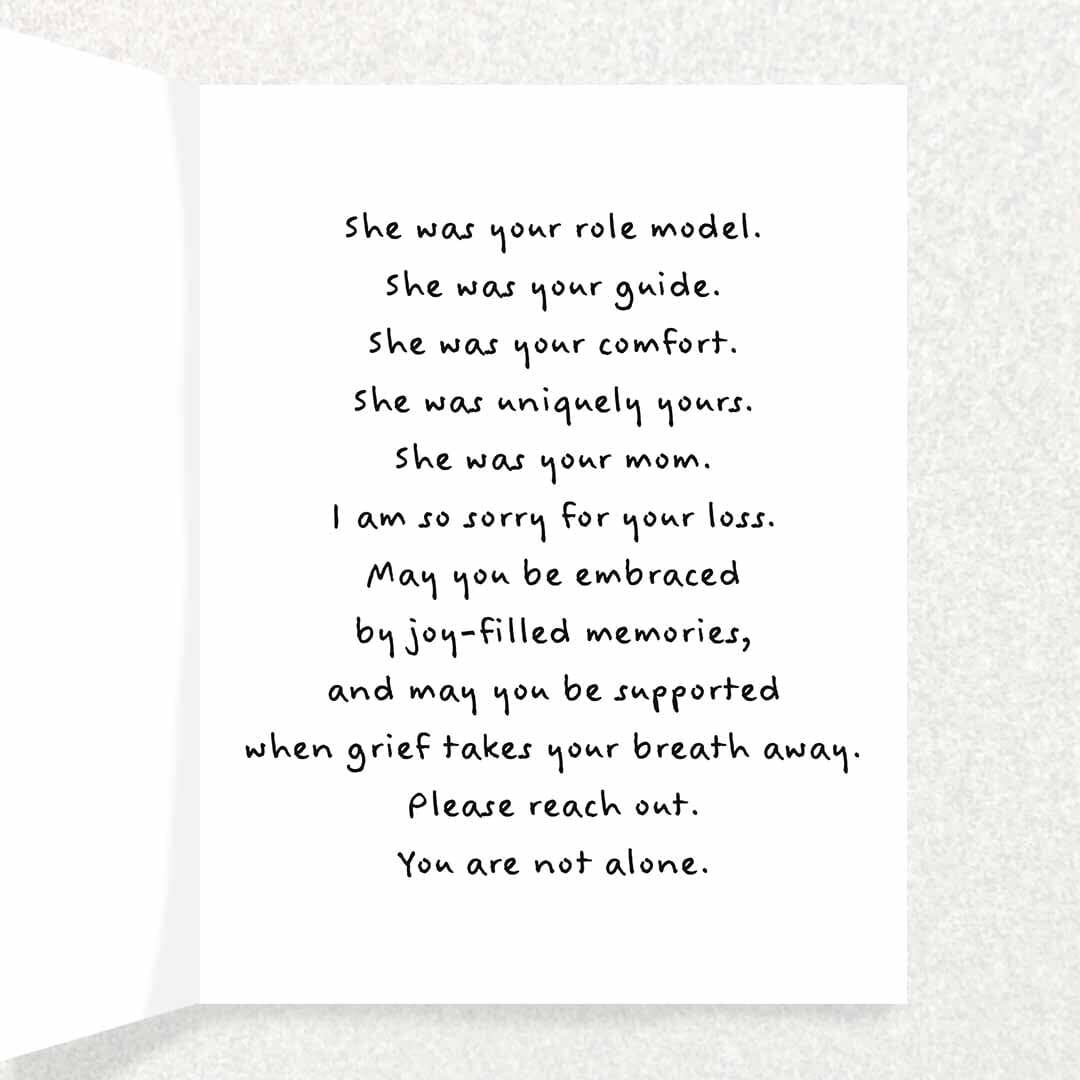 She was your role model.
She was your guide.
She was your comfort.
She was uniquely yours.
She was your mom.
I am so sorry for your loss.
May you be embraced
by joy-filled memories,
and may you be supported
when grief takes your breath away.
Please reach out.
You are not alone.